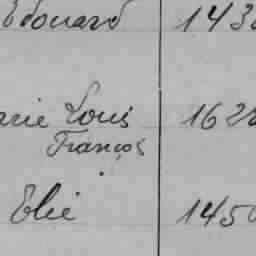 Edouard 143
arie Louis 162
François
Elie 145